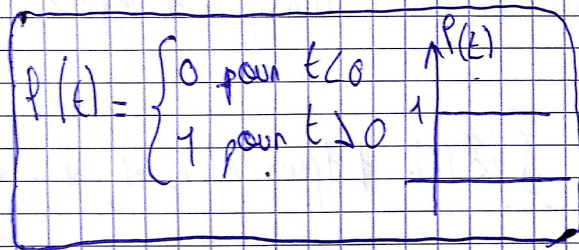 f(t) = { 0 pour t<0
1 pour t>0
f(t)
1